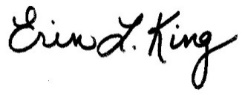 Erin L. King